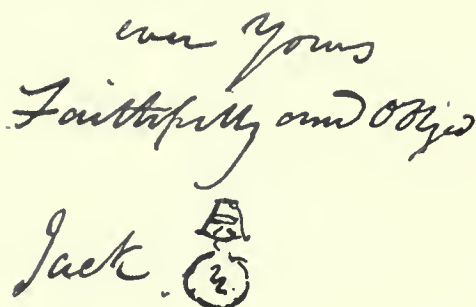 ever Yours
Faithfully and Obliged
Jack.